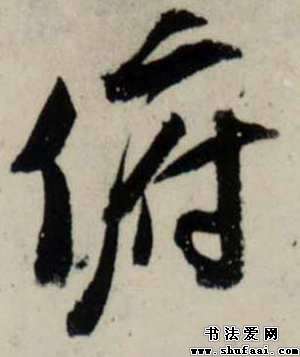 俯
书法爱网
www.shufaai.com